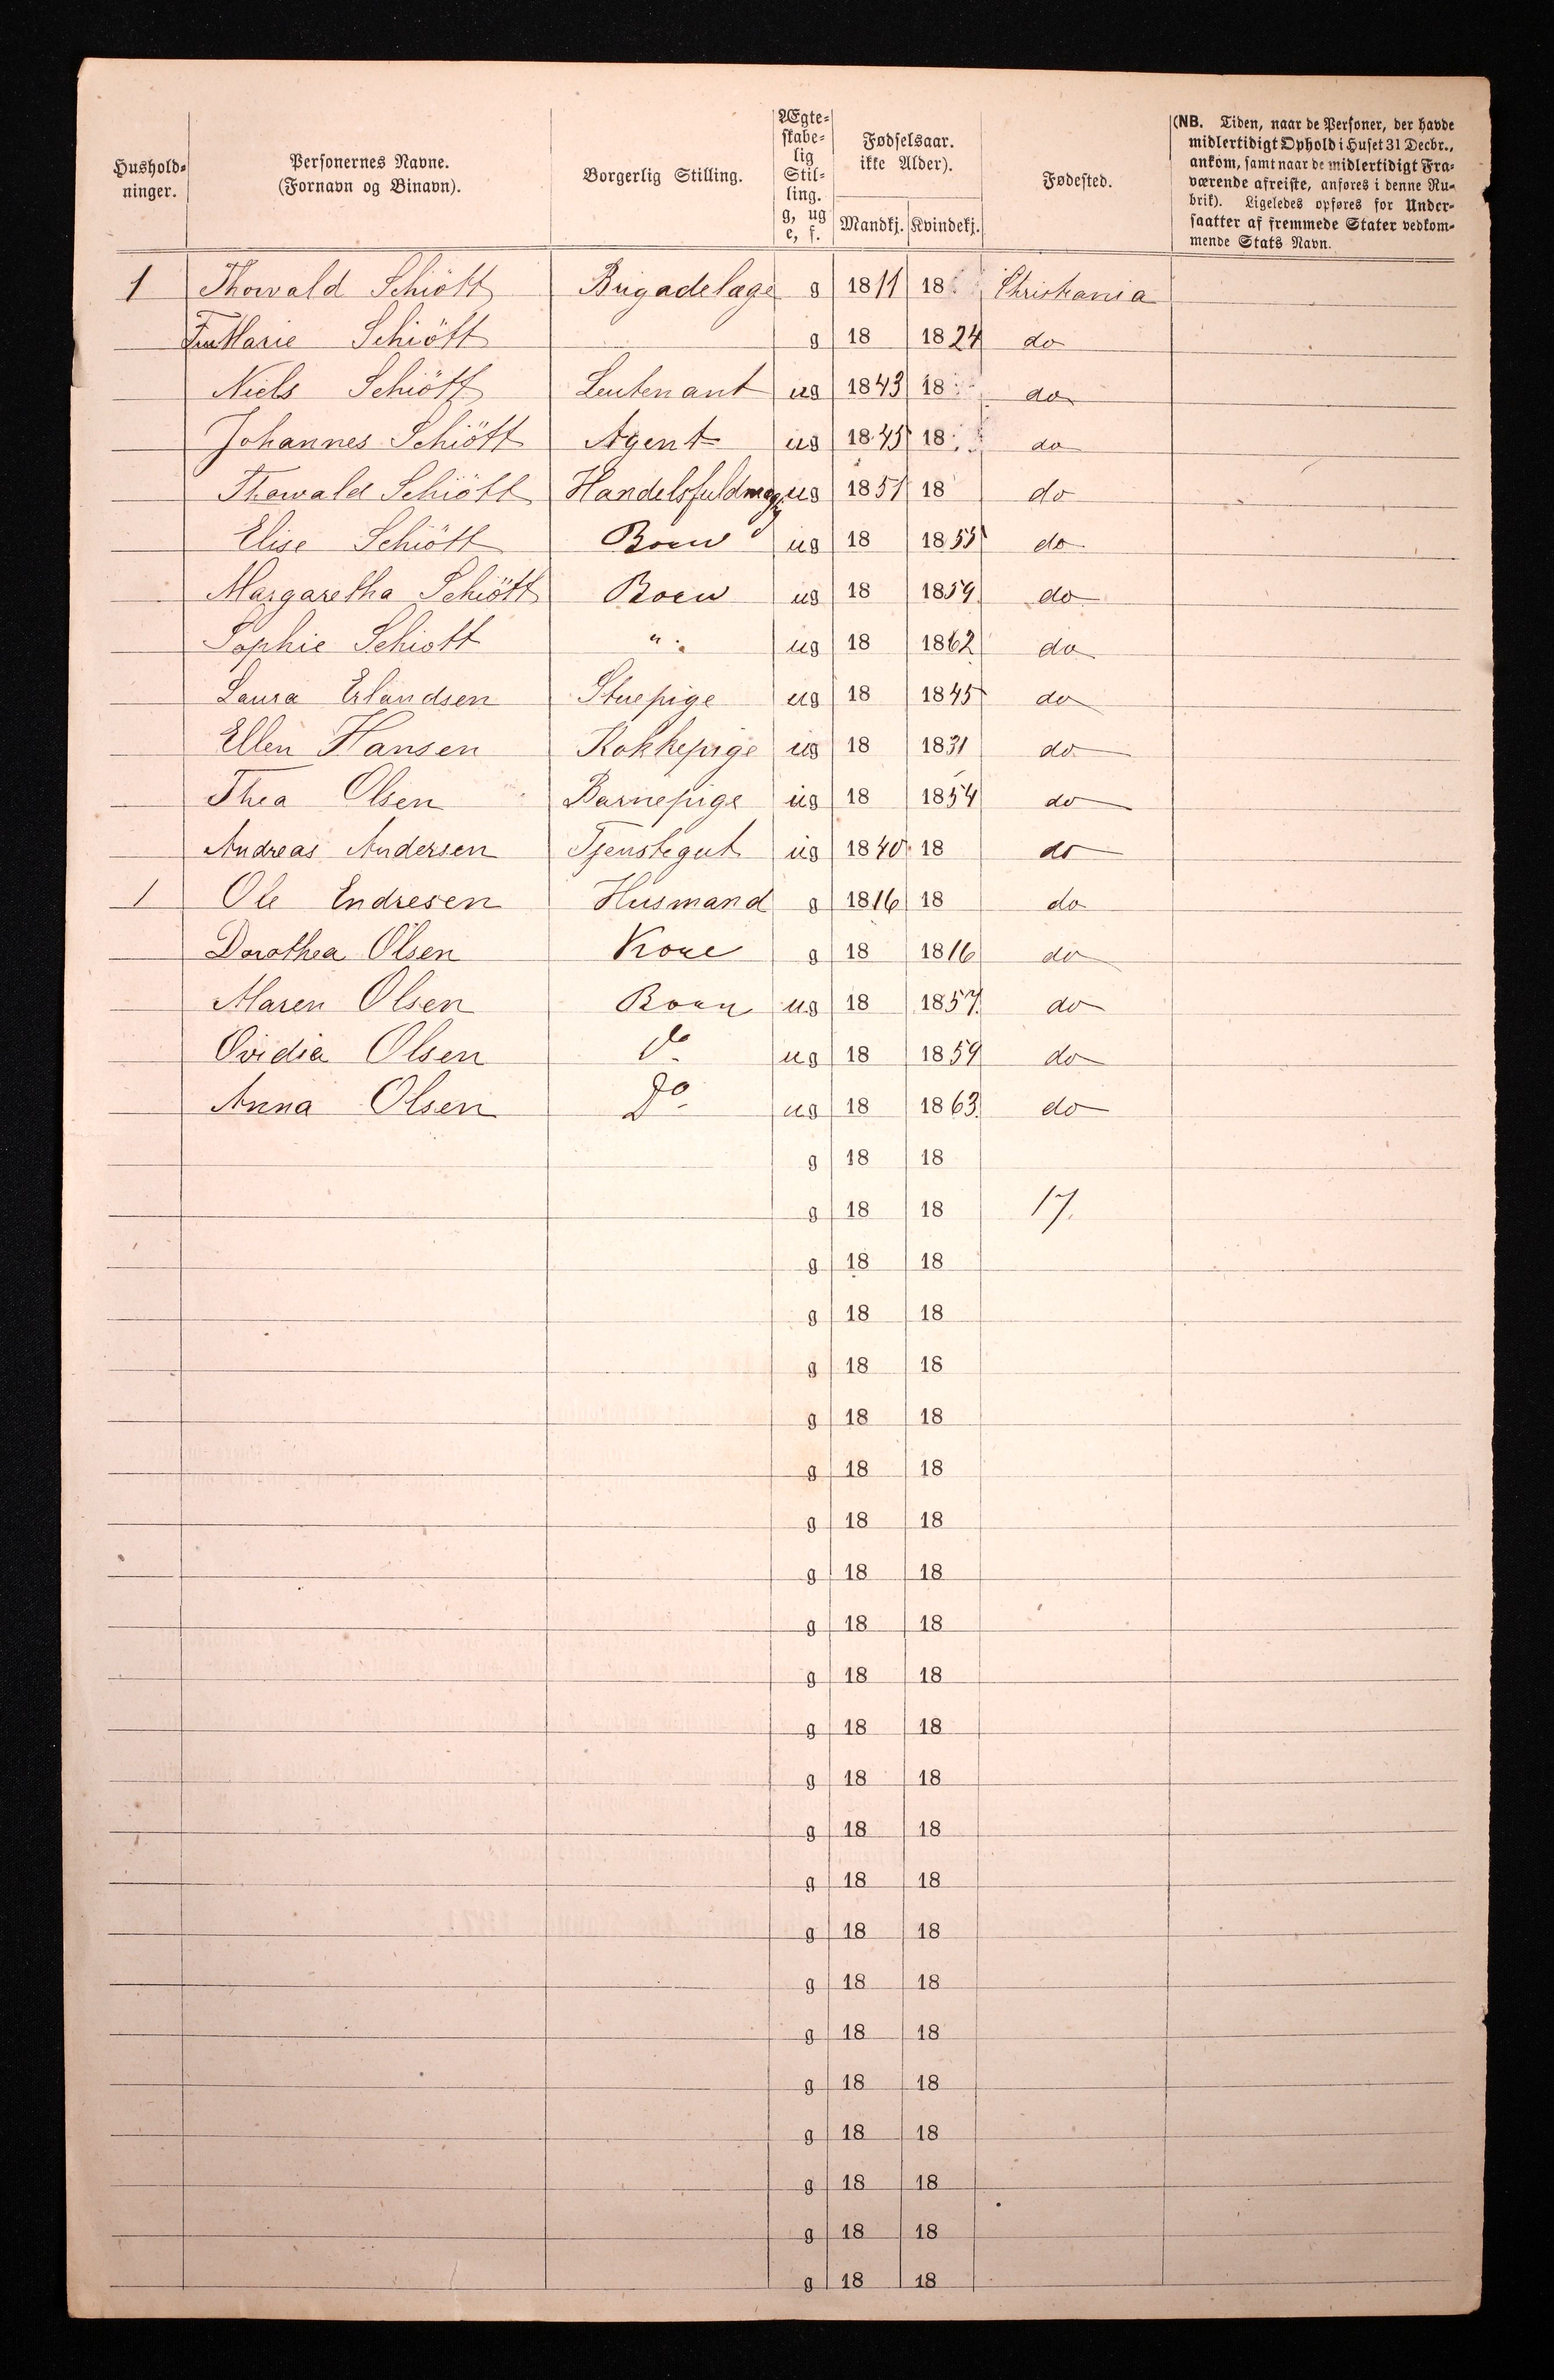 Hushold-
ninger.
Personernes Navne.
(Fornavn og Binavn).
Borgerlig Stilling.
Ægte-
skabe-
lig
Stil-
ling.
g, ug
e, f.
Fødselsaar.
ikke Alder).
Mandkj. Kvindekj.
Fødested.
(NB. Tiden, naar de Personer, der havde
midlertidigt Ophold i Huset 31 Decbr.,
ankom, samt naar de midlertidigt Fra-
værende afreiste, anføres i denne Ru-
brik). Ligeledes opføres for Under-
saatter af fremmede Stater vedkom-
mende Stats Navn.
1 Thorvald Schiött Brigadelæge g 1811 18 Christiania
Fru Marie Schiött g 18 1824 do
Niels Schiött Leutenant ug 1843 18 do
Johannes Schiött Agent ug 1845 18 do
Thorvald Schiött Handelsfuldmægtig ug 1851 18 do
Elise Schiött Börn ug 18 1855 do
Margaretha Schiött Börn ug 18 1859 do
Sophie Schiott " ug 18 1862 do
Laura Erlandsen Stuepige ug 18 1845 do
Ellen Hansen Kokkepige ug 18 1831 do
Thea Olsen Barnepige ug 18 1854 do
Andreas Andersen Tjenstegut ug 1840 18 do
1 Ole Endresen Husmand g 1816 18 do
Dorothea Olsen Kone g 18 1816 do
Maren Olsen Born ug 18 1857. do
Ovidia Olsen do ug 18 1859 do
Anna Olsen Do ug 18 1863. do
g 18 18
g 18 18 17.
g 18 18
g 18 18
g 18 18
g 18 18
g 18 18
g 18 18
g 18 18
g 18 18
g 18 18
g 18 18
g 18 18
g 18 18
g 18 18
g 18 18
g 18 18
g 18 18
g 18 18
g 18 18
g 18 18
g 18 18
g 18 18